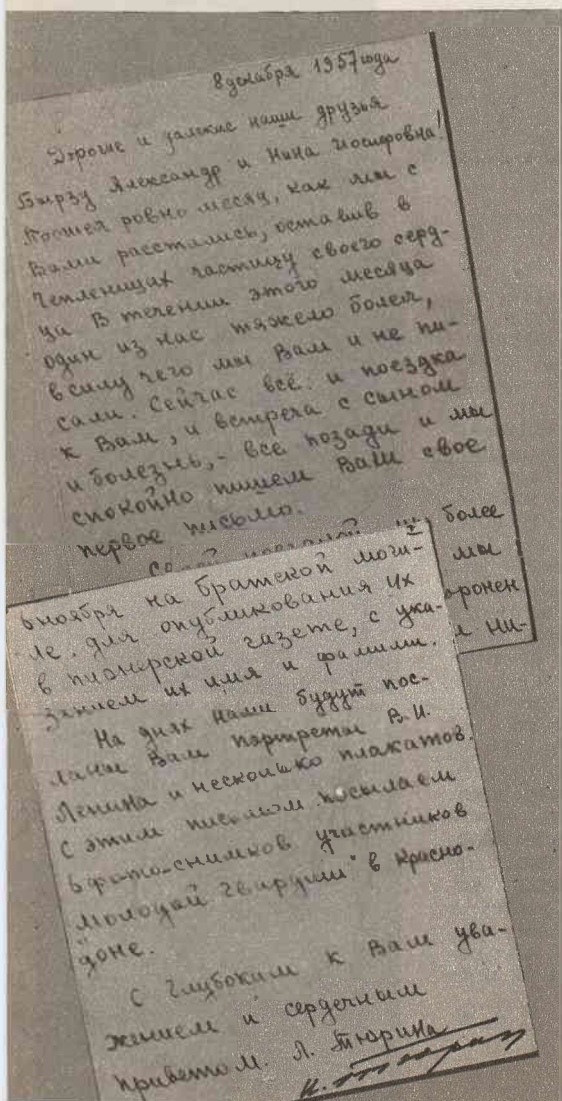 8 декабря 1957 года
Дорогие и далекие наши друзья
Бырзу Александр и Нина Иосифовна!
Прошел ровно месяц, как мы с
Вами расстались, оставив в
Чепленицах частицу своего серд-
ца В течении этого месяца
один из нас тяжело болел,
в силу чего мы Вам и не пи-
сали. Сейчас всё: и поездка
к Вам, и встреча с сыном
и болезнь, - все позади и мы
спокойно пишем Вам свое
первое письмо.
более
мы
оронен
и ни-
6 ноября на братской моги-
ле. для опубликования их
в пионерской газете, с ука-
занием их имя и фамили.
На днях нами будут пос-
ланы Вам портреты В.И.
Ленина и несколько плакатов.
С этим письмом посылаем
6 фото-снимков участников
"Молодой Гвардии" в Красно-
доне.
С глубоким к Вам ува-
жением и сердечным
приветом. Л. Тюрина